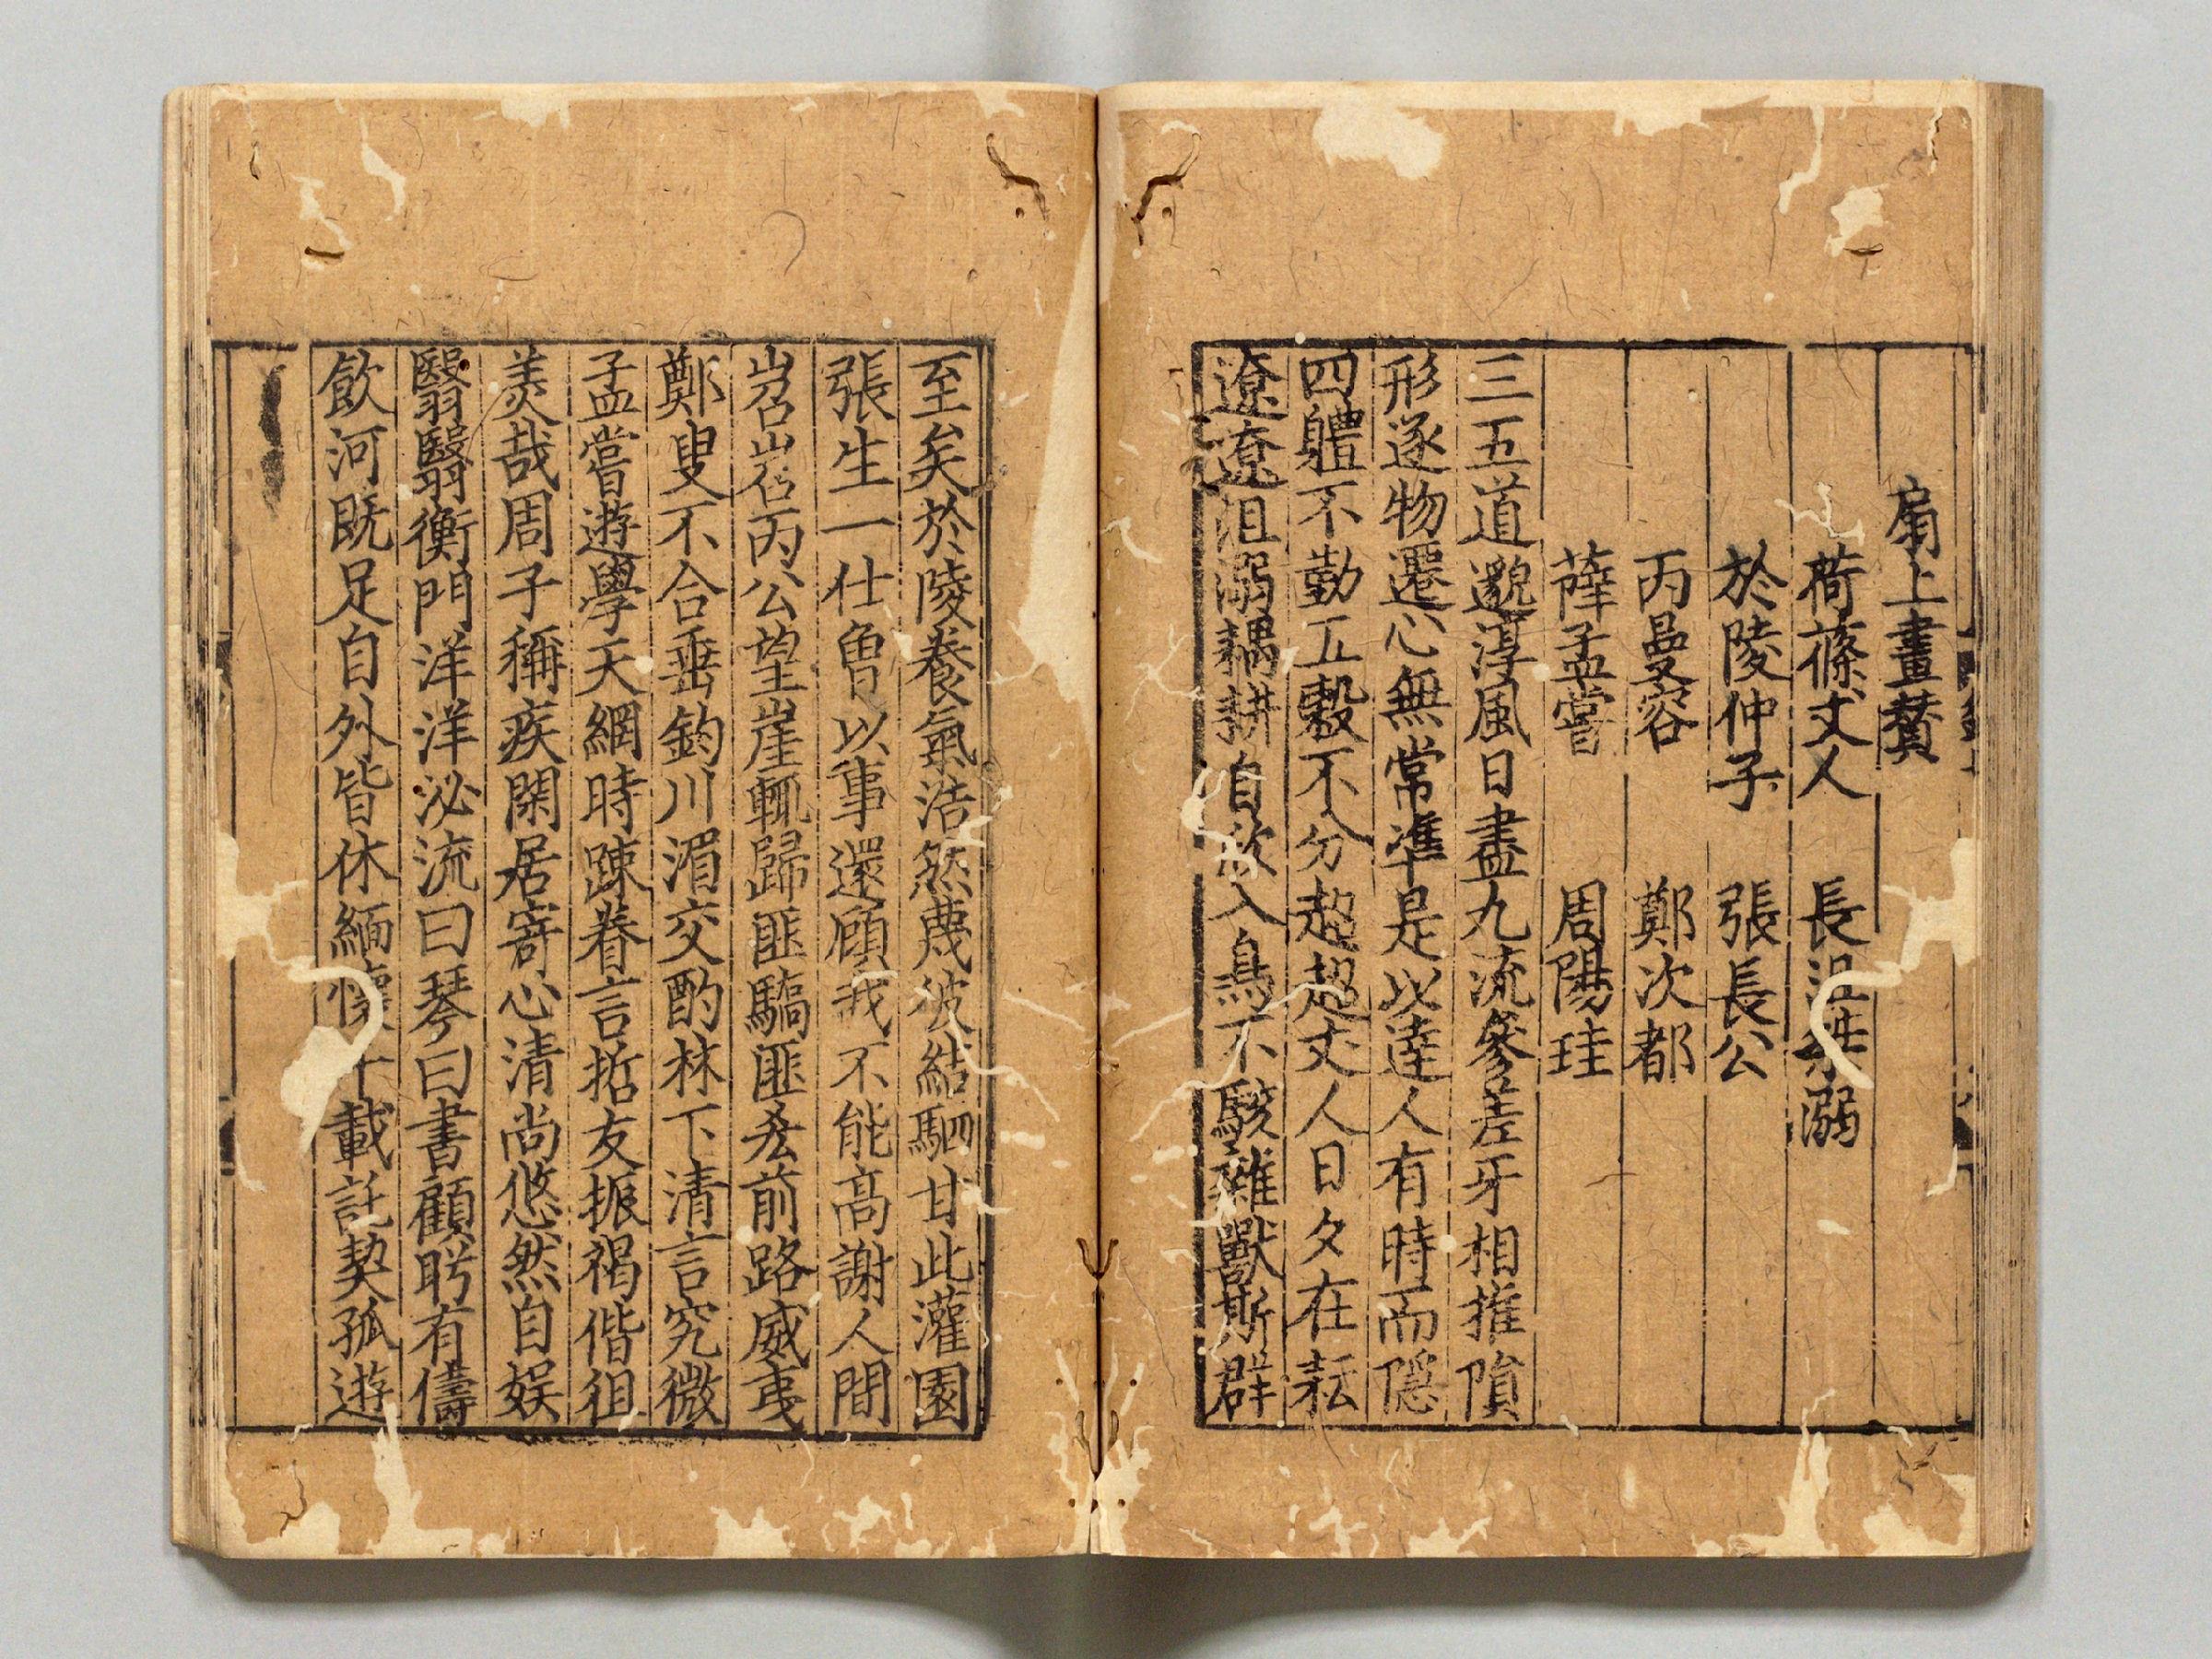 扇上畫賛
荷蓧丈人　長沮桀溺
於陵仲子　張長公
丙曼容　鄭次都
薛孟嘗　周陽珪
三五道邈淳風日盡九流參差牙相推隕
形逐物遷心無常凖是以達人有時而隱
四軆不勤五穀不分超超丈人日夕在耘
遼遼沮溺耦耕自欣入鳥不駭雜獸斯群
至矣於陵養氣浩然蔑彼結駟甘此灌園
張生一仕曾以事還顧我不能高謝人間
岧岧丙公望崖輒歸匪驕匪吝前路威夷
鄭叟不合垂釣川湄交酌林下清言究微
孟嘗遊學天網時踈眷言哲友振褐偕徂
美哉周子稱疾閑居寄心清尚悠然自娛
翳翳衡門洋洋泌流曰琴曰書顧眄有儔
飲河既足自外皆休緬懷千載託契孤遊